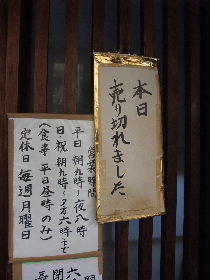 本日
売り切れました
営業時間
平日 朝九時〜夜八時
日・祝 朝九時〜夕方六時まで
(食事 平日昼時のみ)
定休日 毎週月曜日